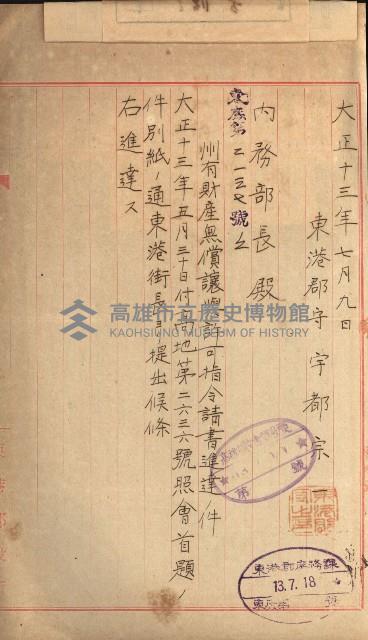 大正十三年七月九日
東港郡守宇都宗
東庶第二一三七號ノ2
內務部長殿
州有財產無償讓與許可指令請書進達ノ件
大正十三年五月三十日付高地第二六三六號照會首題ノ
件別紙ノ通東港街長ヨリ提出候條
右進達ス
高雄市立歷史博物館
KAOHSIUNG MUSEUM OF HISTORY
第 號
東港郡庶務課
13.7.18
東庶第 號